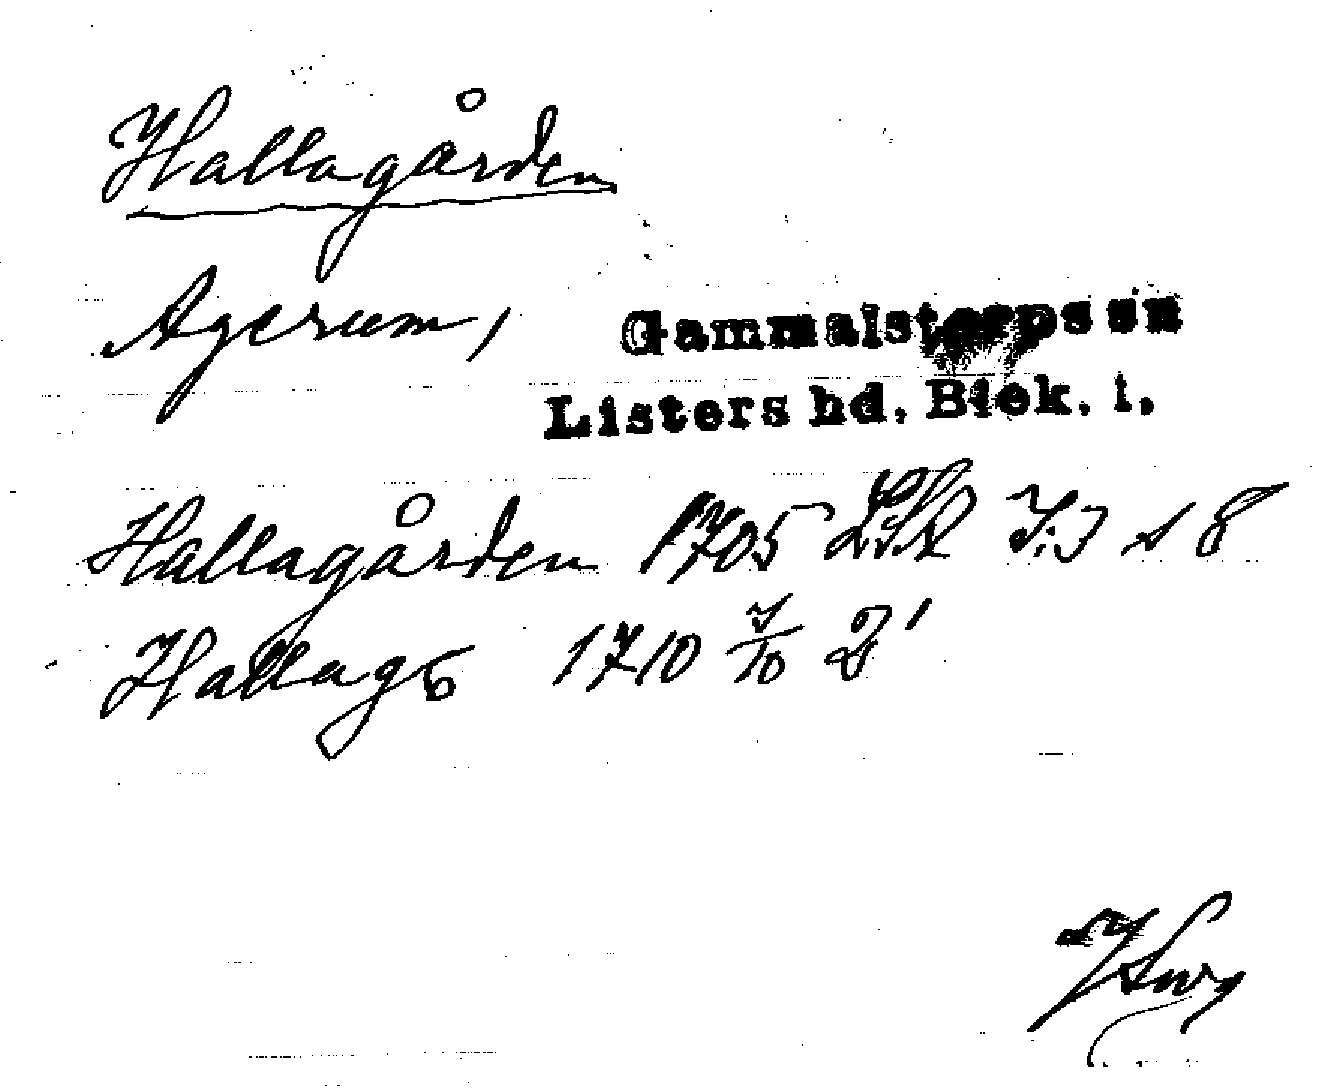 Hallagården
Agerum, Gammalstorps sn
Listers hd. Blek. l.
Hallagården 1705 s 8
Hallag 1710 7/10 2'